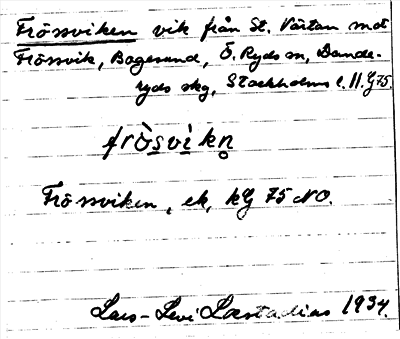 Frössviken vik från St. Värtan mot
Frössvik, Bogesund, Ö. Ryds sn, Dande-
ryds skg, Stockholms l. II. G75.
fròsvìkn̥
Frössviken, ek, kG 75 NO.
Lars-Levi Læstadius 1934.